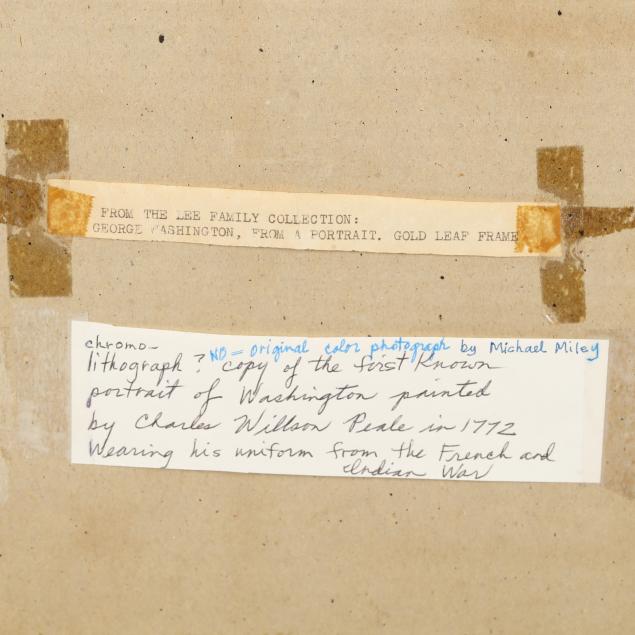 FROM THE LEE FAMILY COLLECTION:
GEORGE WASHINGTON, FROM A PORTRAIT. GOLD LEAF FRAME
chromo-
NO = original color photograph by Michael Miley
lithograph? copy of the first Known
portrait of Washington painted
by Charles Willson Peale in 1772
Wearing his uniform from the French and
Indian War